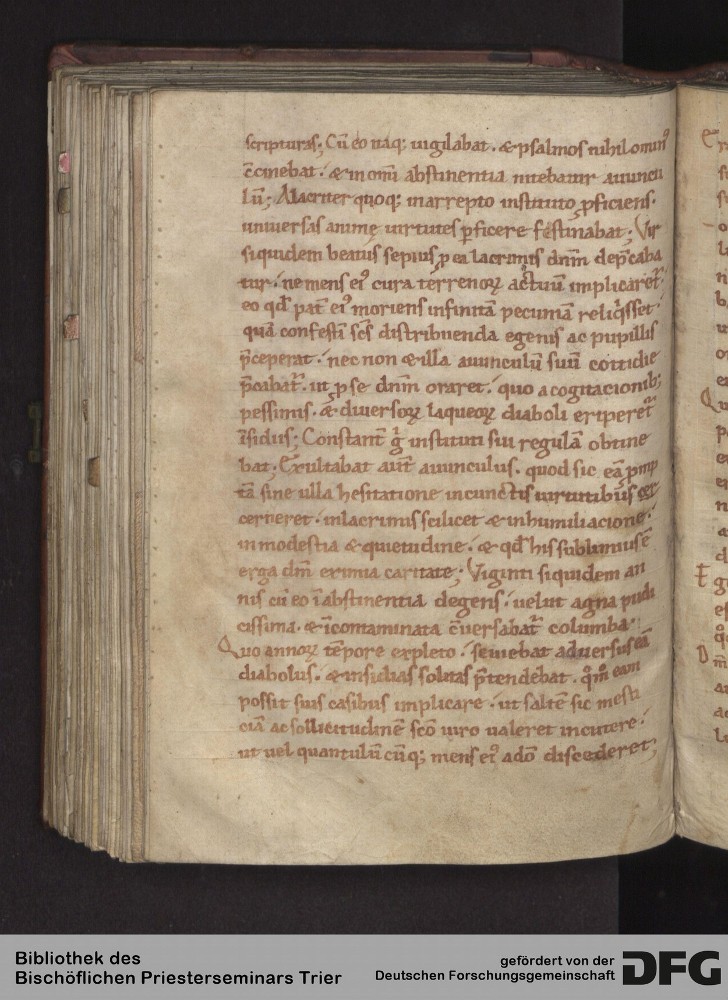 scripturas; Cū eo itaq; uigilabat. & psalmos nihilomin᾿
c̄cinebat. & in omī abstinentia nitebatur auuncu
lū; Alacriter quoq; in arrepto instituto ꝓficiens.
uniuersas animę uirtutes ꝑficere festinabat; Vir
siquidem beatus sepius ꝓ ea lacrimis dn̄m dep̄caba
tur. ne mens ei᾿ cura terrenoꝝ actuū implicaret᾿.
eo qd̄ pat̄ ei᾿ moriens infinitā pecuniā reliqͥsset.
quā confestī sc̄s distribuenda egenis ac pupillis
p̄ceperat. nec non & illa auunculū suū cottidie
p̄cabat᾿. ut ꝓ se dn̄m oraret. quo a cogitacionib;
pessimis. & diuersoꝝ laqueoꝝ diaboli eriperet᾿
īsidiis; Constant̄ gͥ instituti sui regulā obtine
bat; Exultabat aut̄ auunculus. quod sic eā ꝓmp
tā sine ulla hesitatione in cunctis uirtutibus
cerneret. in lacrimis scilicet & in humiliacione.
in modestia & quietudine. & qd̄ his sublimius ē
erga dm̄ eximia caritate; Viginti siquidem an
nis cū eo ī abstinentia degens. uelut agna pudi
cissima. & īcontaminata c̄uersabat᾿ columba.
Quo annoꝝ tēpore expleto. seuiebat aduersus eā
diabolus. & insidias solitas p̄tendebat. qͦm̄ eam
possit suis casibus implicare. ut saltē sic mesti
ciā ac sollicitudinē sc̄o uiro ualeret incutere.
ut uel quantulūcūq; mens ei᾿ a dō discederet;
Bibliothek des
Bischöflichen Priesterseminars Trier
gefördert von der
Deutschen Forschungsgemeinschaft
DFG